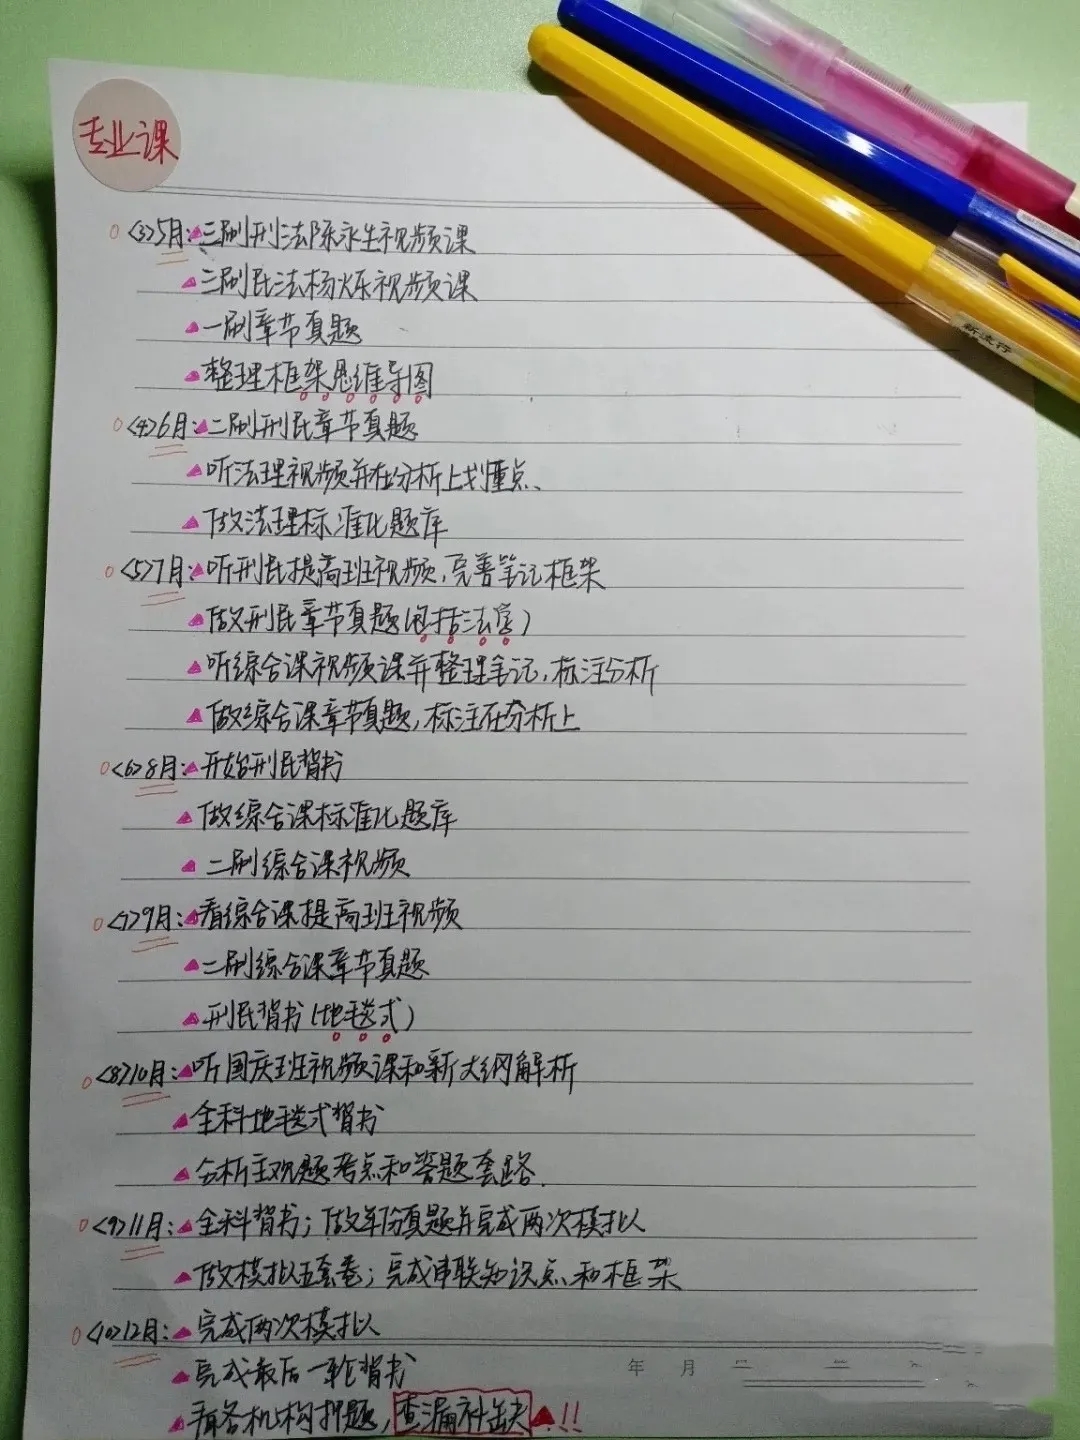 专业课
<3>5月:▲三刷刑法陈永生视频课
▲三刷民法杨烁视频课
▲一刷章节真题
▲整理框架思维导图
<4>6月:▲二刷刑民章节真题
▲听法理视频并在分析上划重点、
▲做法理标准化题库
<5>7月:▲听刑民提高班视频,完善笔记框架
▲做刑民章节真题(包括法学)
▲听综合课视频课并整理笔记,标注分析
▲做综合课章节真题,标注在分析上
<6>8月:▲开始刑民背书
▲做综合课标准化题库
▲二刷综合课视频
<7>9月:▲看综合课提高班视频
▲二刷综合课章节真题
▲刑民背书(地毯式)
<8>10月:▲听国庆班视频课和新大纲解析
▲全科地毯式背书
▲分析主观题考点和答题套路.
<9>11月:▲全科背书;做年份真题并完成两次模拟
▲做模拟五套卷;完成串联知识点和框架
<10>12月:▲完成两次模拟
▲完成最后一轮背书
▲看各机构押题,查漏补缺▲!!
年 月
新流行